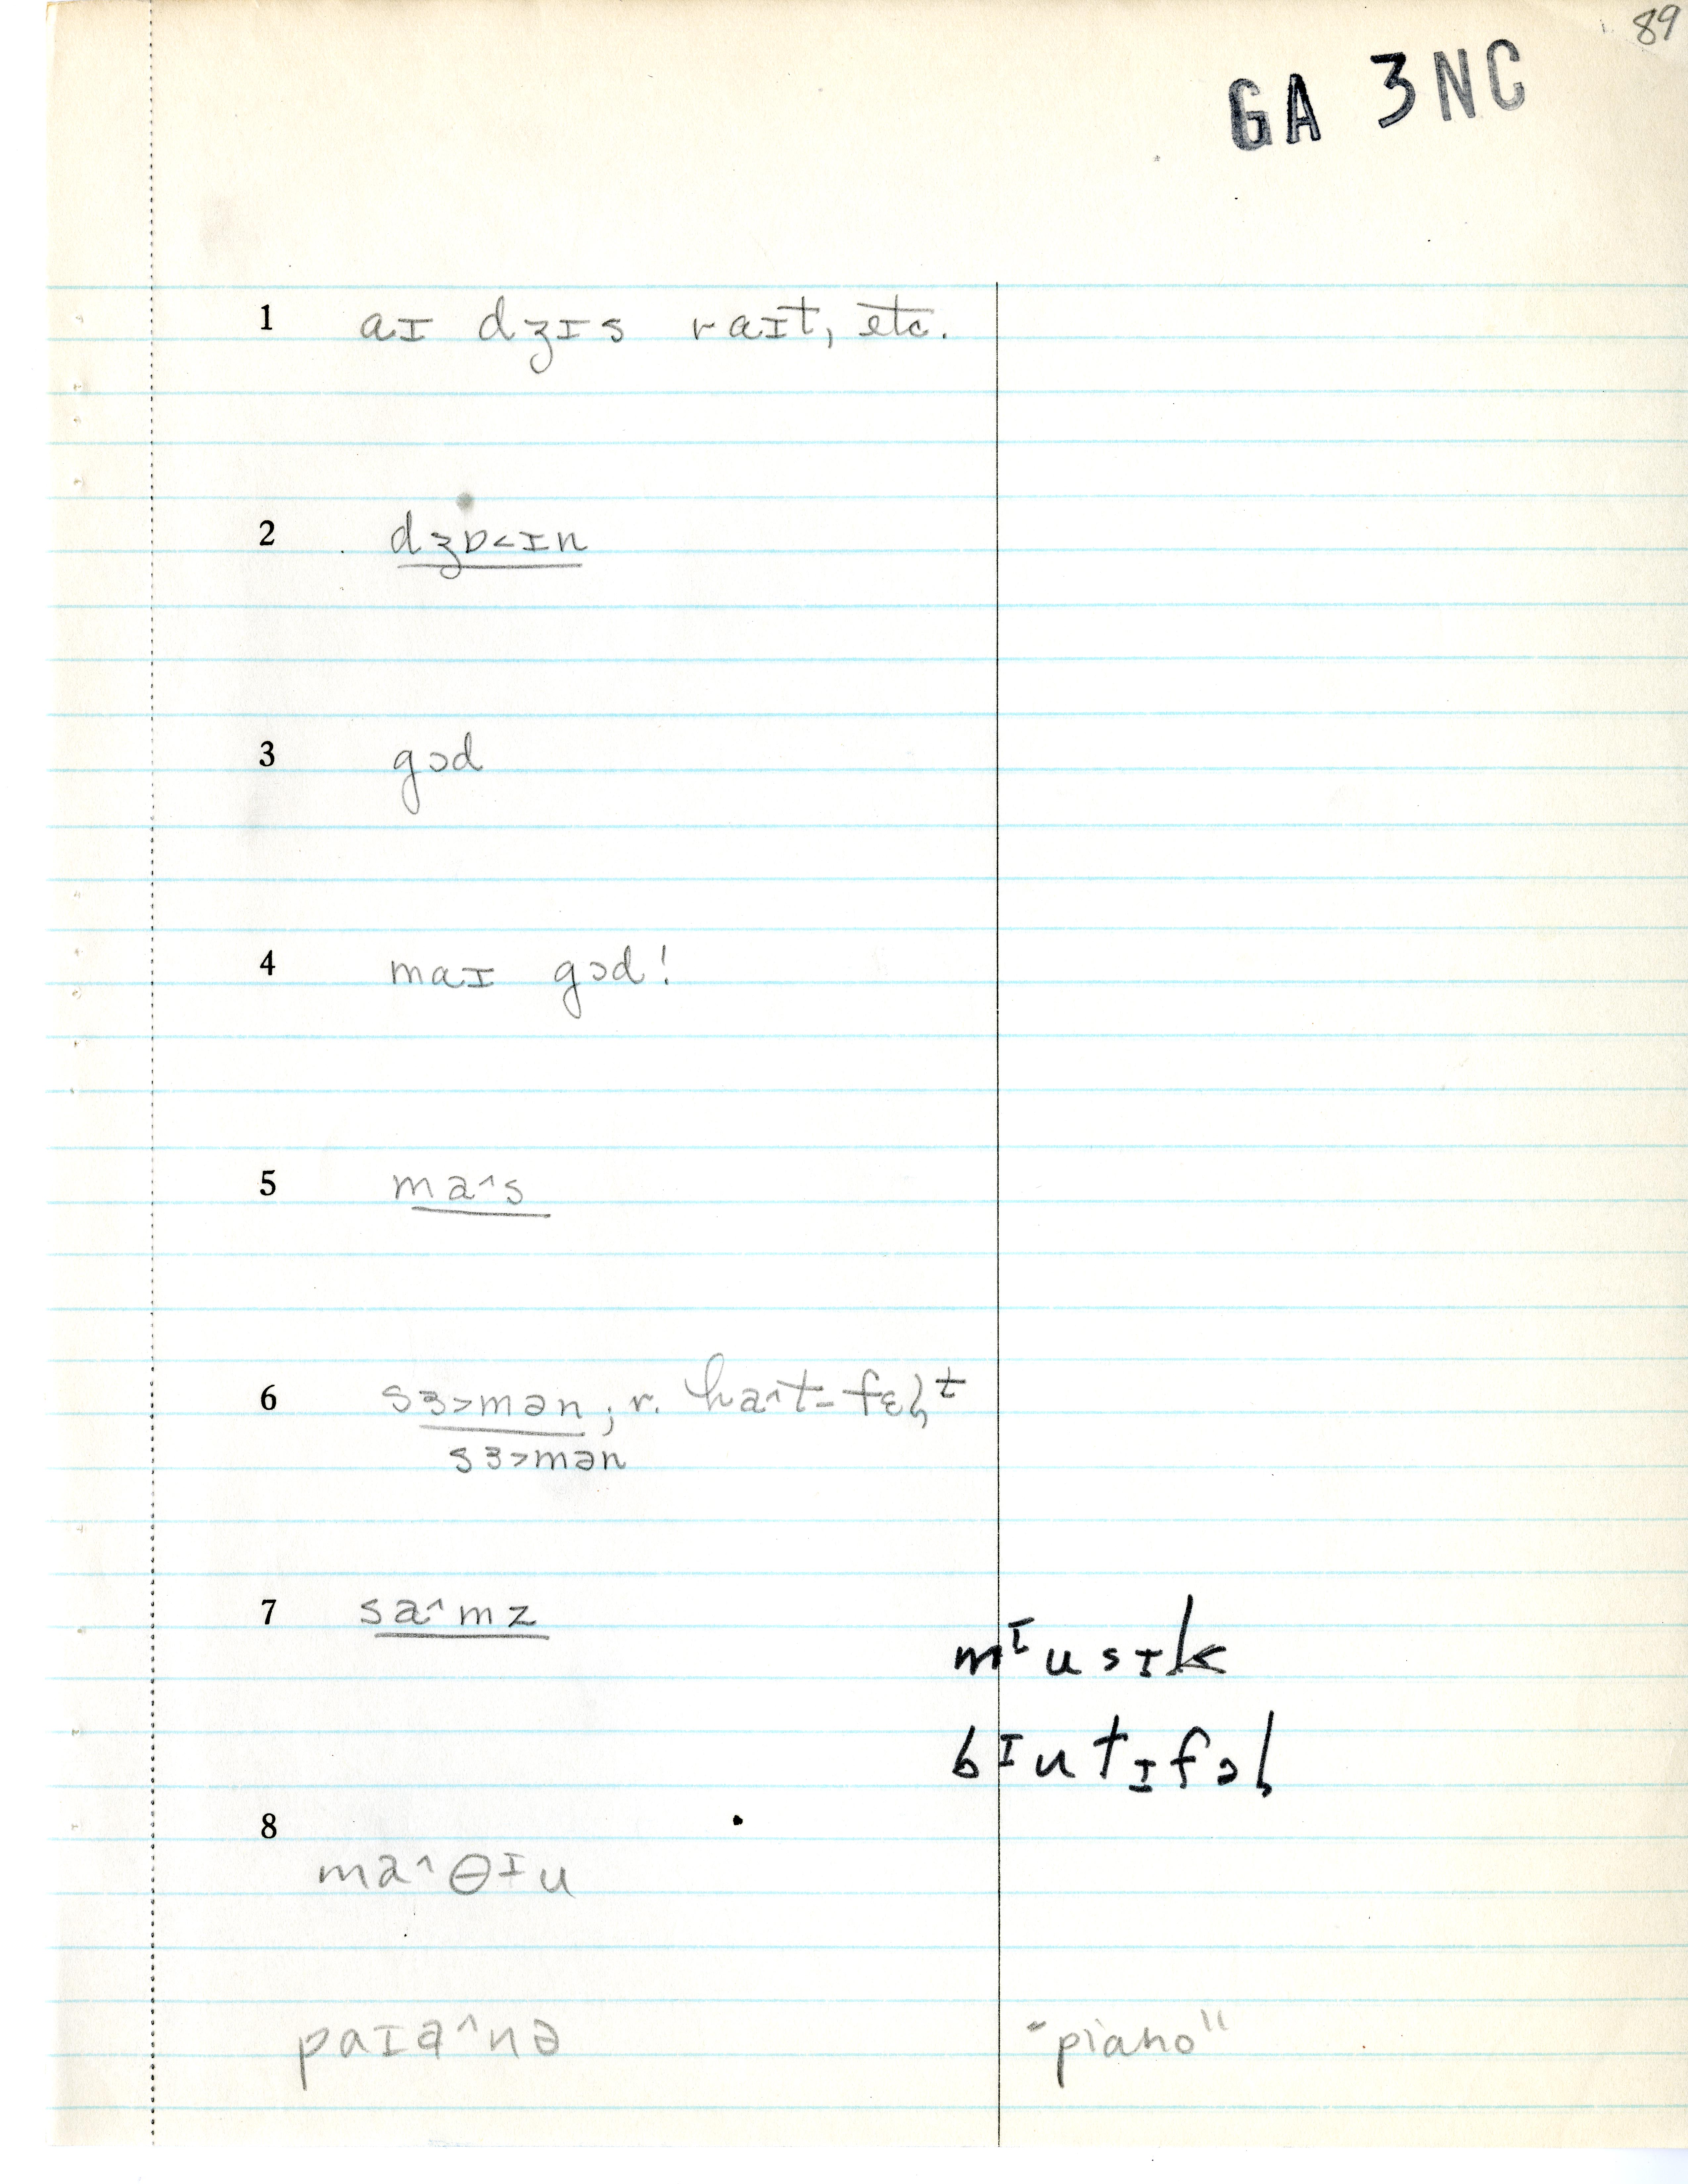 89
GA 3NC
1 aɪ dʒɪs raɪt, etc.
2 dʒɒ<ɪn
3 gɔd
4 maɪ gɔd!
5 ma^s
6 sɜ>mən; r. ha^t-fɛl̩t
sɜ>mən
7 sa^mz
mɪusɪk
bɪutɪfəl
8
ma^θɪu
paɪa^nə "piano"